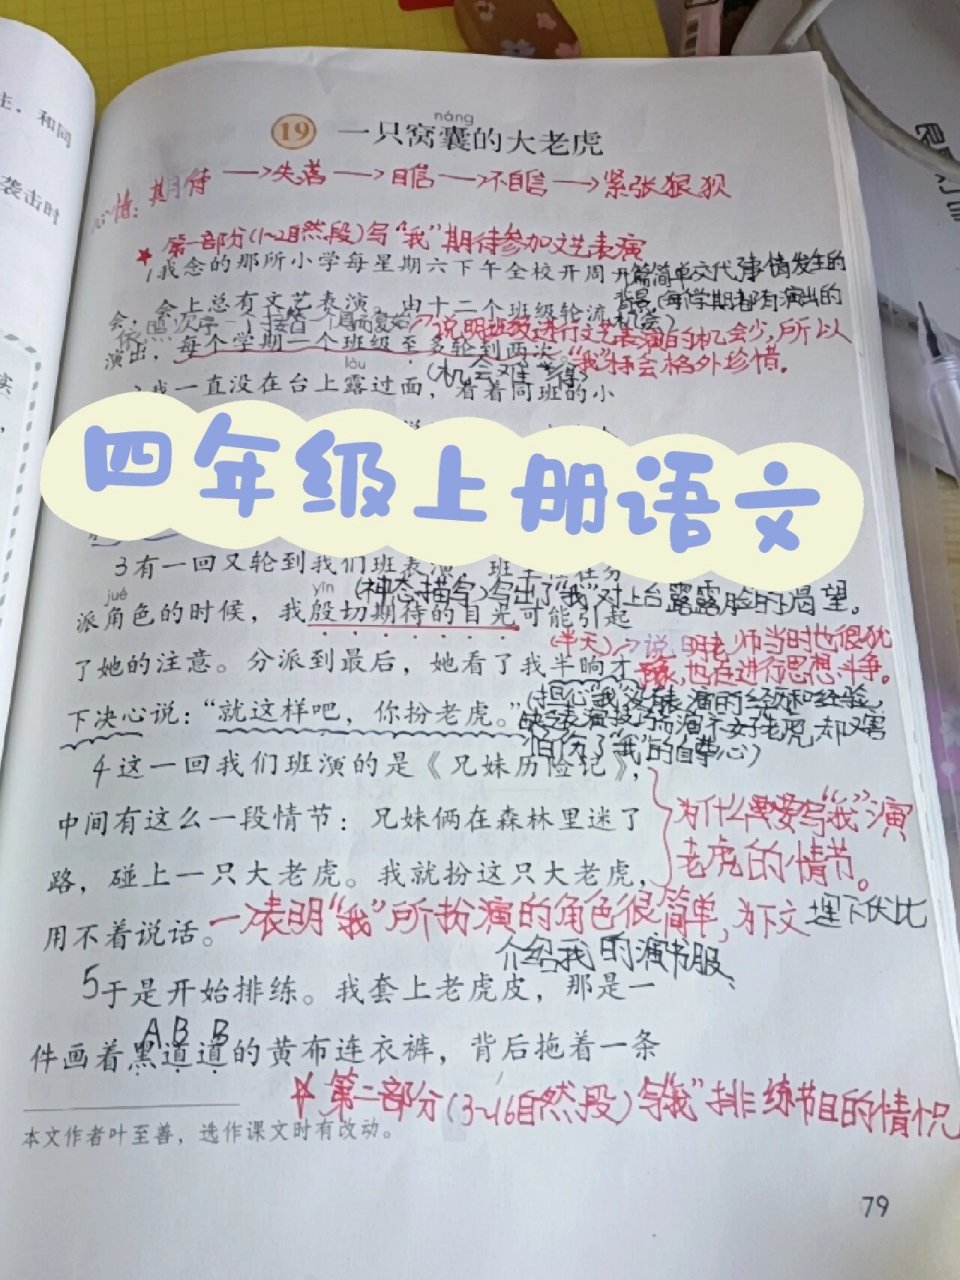 主，和同
袭击时
实
náng
19 一只窝囊的大老虎
心情：期待→失落→自信→不自信→紧张狼狈
★第一部分(1~2自然段)写“我”期待参加文艺表演
1我念的那所小学每星期六下午全校开周
开篇简单交代事情发生的
会，会上总有文艺表演。由十二个班级轮流
背景(每学期都有演出的
机会)
依照次序一个接着一个周而复始
说明班级进行文艺表演的机会少，所以
演出，每个学期一个班级至多轮到两次
“我”才会格外珍惜。
(机会难得)
lòu
我一直没在台上露过面，看着同班的小
四年级上册语文
3有一回又轮到我们班表演，班主任分
(神态描写)写出了“我”对上台露露脸的渴望。
jué
yīn
派角色的时候，我殷切期待的目光可能引起
(半天)→说明老师当时也很犹
了她的注意。分派到最后，她看了我半晌才
豫，也在进行思想斗争。
(担心“我”没有表演的经历和经验，
下决心说：“就这样吧，你扮老虎。”
缺乏表演技巧而演不好老虎，却又害
怕伤了“我”的自尊心)
4这一回我们班演的是《兄妹历险记》，
中间有这么一段情节：兄妹俩在森林里迷了
为什么要写“我”演
老虎的情节。
路，碰上一只大老虎。我就扮这只大老虎，
用不着说话。→表明“我”所扮演的角色很简单，为下文埋下伏比
介绍我的演出服
5于是开始排练。我套上老虎皮，那是一
A B B
件画着黑道道的黄布连衣裤，背后拖着一条
☆第二部分(3~16自然段)写“我”排练节目的情况
本文作者叶至善，选作课文时有改动。
79